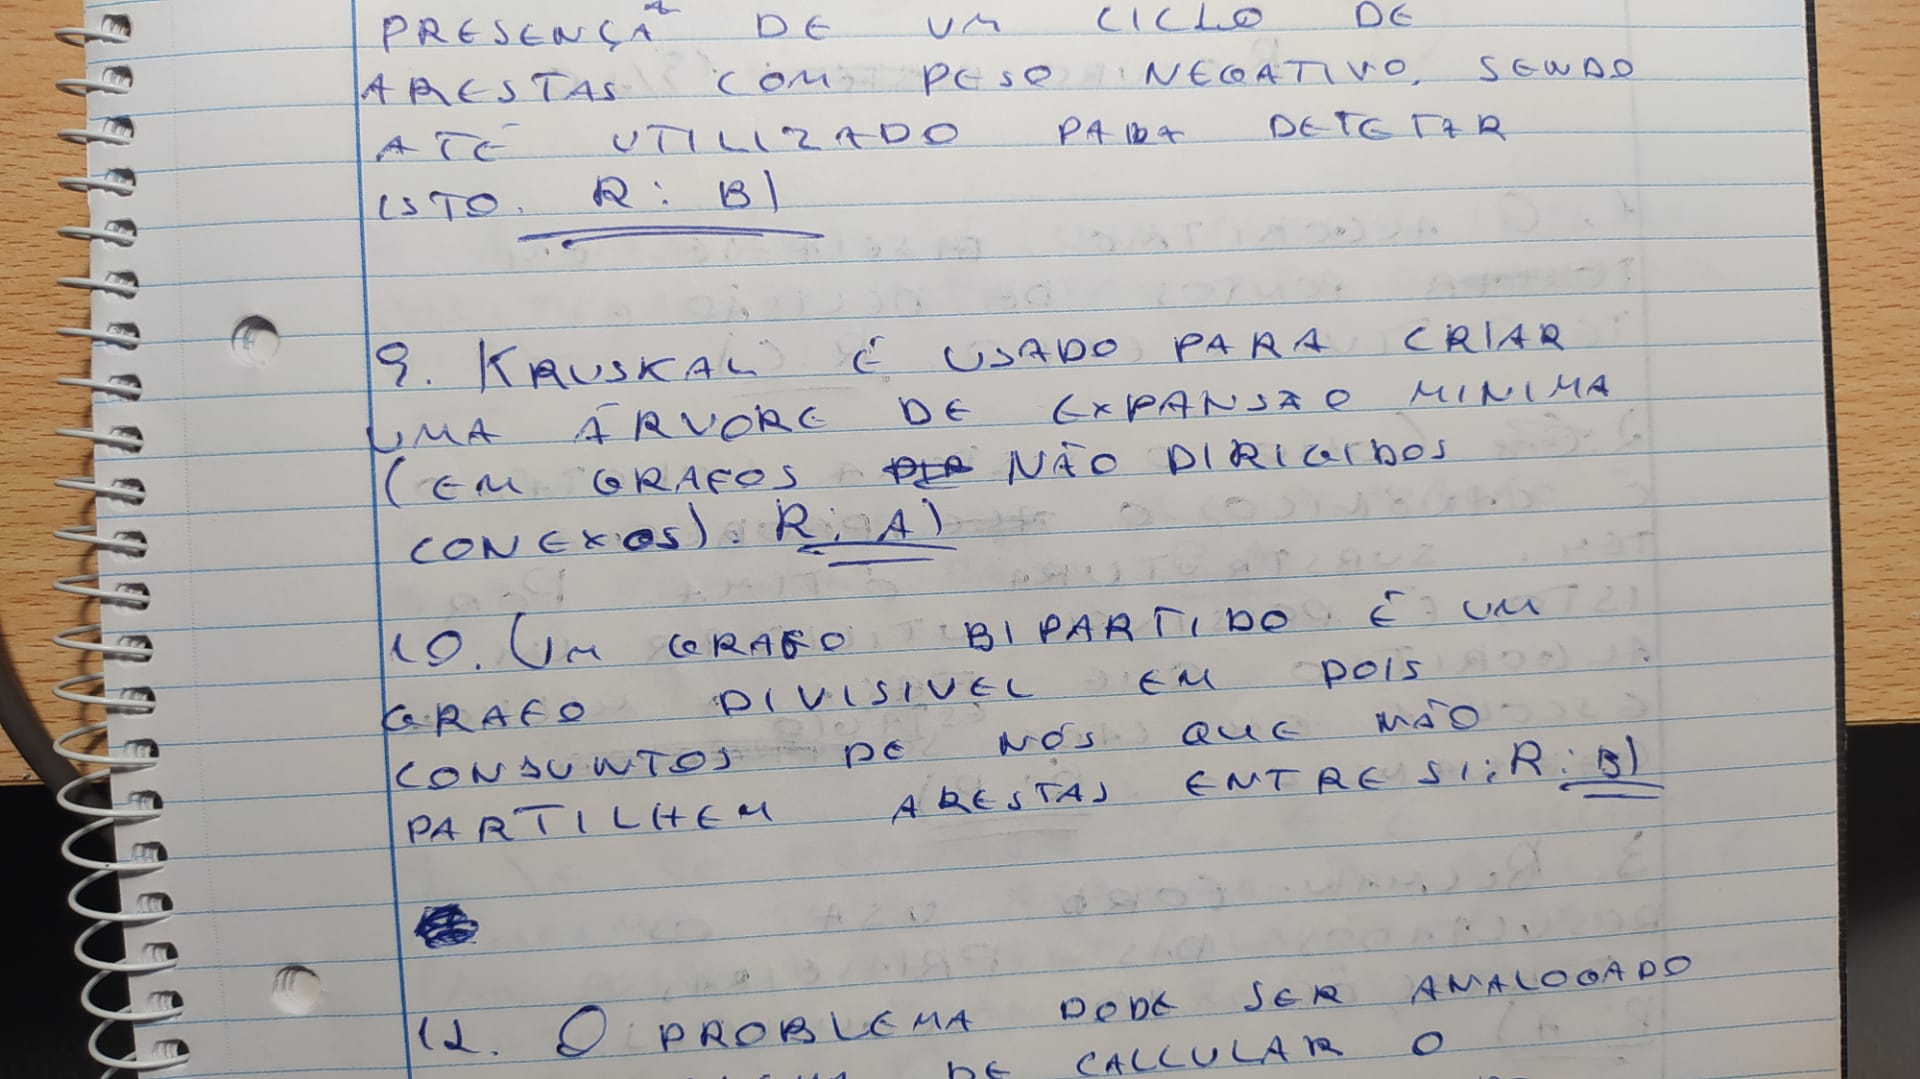 PRESENÇA DE UM CICLO DE
ARESTAS COM PESO NEGATIVO, SENDO
ATÉ UTILIZADO PARA DETETAR
ISTO. R: B)
9. KRUSKAL É USADO PARA CRIAR
UMA ÁRVORE DE EXPANSÃO MINIMA
(EM GRAFOS NÃO DIRIGIDOS
CONEXOS). R: A)
10. UM GRAFO BIPARTIDO É UM
GRAFO DIVISIVEL EM DOIS
CONJUNTOS DE NÓS QUE NÃO
PARTILHEM ARESTAS ENTRE SI; R: B)
12. O PROBLEMA PODE SER ANALOGADO
DE CALCULAR O